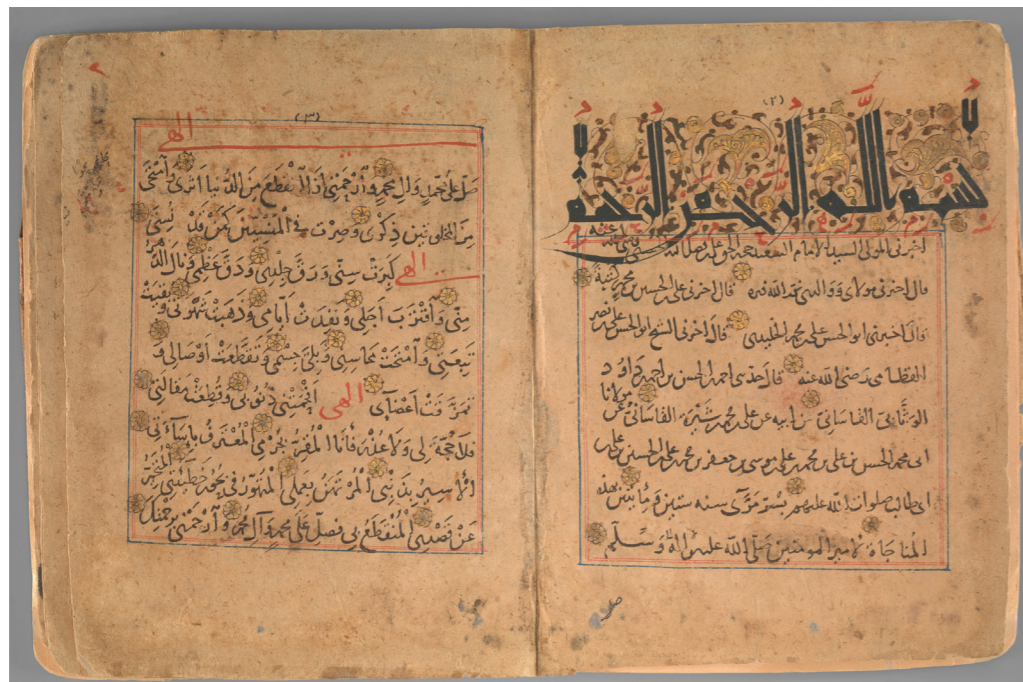 (٢)
بسم الله الرحمن الرحيم
اخبرني المولى السيد الامام السعيد
رضي الله عنه
قال اخبرني مولاي ووالدي قال اخبرني علي بن الحسن بن محمد
قال اخبرني ابو الحسن علي بن محمد الخليدي قال اخبرني الشيخ ابو الحسن علي بن نصر
القطامي رضي الله عنه قال حدثني احمد بن الحسن بن احمد بن داود
القاساني عن ابيه عن علي بن محمد بن شيرة القاساني عن
مولانا
ابي محمد الحسن بن علي بن محمد بن علي بن موسى بن جعفر بن محمد بن علي بن الحسين بن علي بن
ابي طالب صلوات الله عليهم بسر من رأى سنة ستين ومائتين بهذه
المناجاة لامير المؤمنين صلى الله عليه وآله وسلم
(٣)
الهي
صَلِّ عَلى مُحَمَّدٍ وَآلِ مُحَمَّدٍ وَارْحَمْنِي إِذَا انْقَطَعَ مِنَ الدُّنْيا أَثَرِي وَامْتَحى
مِنَ المَخْلُوقِينَ ذِكْرِي وَصِرْتُ فِي الْمَنْسِيِّينَ كَمَنْ قَدْ نُسِيَ
الهي كَبِرَتْ سِنِّي وَرَقَّ جِلْدِي وَدَقَّ عَظْمِي وَنالَ الدَّهْرُ
مِنِّي وَاقْتَرَبَ أَجَلِي وَنَفِدَتْ أَيّامِي وَذَهَبَتْ شَهْوَتِي وَبَقِيَتْ
تَبِعَتِي وَامْتَحَتْ مَحاسِنِي وَبَلِيَ جِسْمِي وَتَقَطَّعَتْ أَوْصالِي وَ
تَفَرَّقَتْ أَعْضائِي الهي أَفْحَمَتْنِي ذُنُوبِي وَقُطِعَتْ مَقالَتِي
فَلا حُجَّةَ لِي وَلا عُذْرَ فَأَنَا الْمُقِرُّ بِجُرْمِي الْمُعْتَرِفُ بِإِساءَتِي
الْأَسِيرُ بِذَنْبِي الْمُرْتَهَنُ بِعَمَلِي الْمُتَهَوِّرُ فِي بُحُورِ خَطِيئَتِي الْمُتَحَيِّرُ
عَنْ قَصْدِي الْمُنْقَطَعُ بِي فَصَلِّ عَلى مُحَمَّدٍ وَآلِ مُحَمَّدٍ وَارْحَمْنِي بِرَحْمَتِكَ